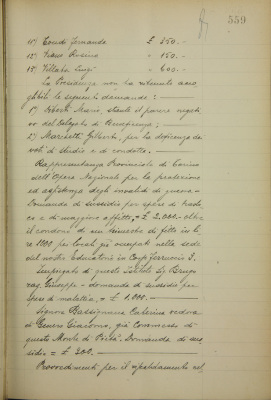 559
11) Conti Fernanda £ 250.-
12) Rosina " 150.-
13) Villata Luigi " 400.-
La Presidenza non ha ritenuto acco
glibili le seguenti domande:
1) Mario, stante il parere negati
vo del Delegato di Beneficenza;
2) Marietti Gilberto, per la deficenza dei
voti di studio e di condotta.
Rappresentanza Provinciale di Torino
dell'Opera Nazionale per la protezione
ed assistenza degli invalidi di guerra -
Domanda di sussidio per spese di
co e di maggiore affitto, = £ 2.000.- oltre
il condono di un trimestre di fitto in li
re 1000 per locali già occupati nella sede
del nostro Educatorio in
Impiegato di questo Istituto Sig.
Giuseppe - domanda di sussidio per
spese di malattia, = £ 1.000.-
Signora Bassignana Caterina vedova
di Giacomo, già commesso di
questo Monte di Pietà. Domanda di sus
sidio = £ 300.-
Provvedimenti per il riscaldamento nel